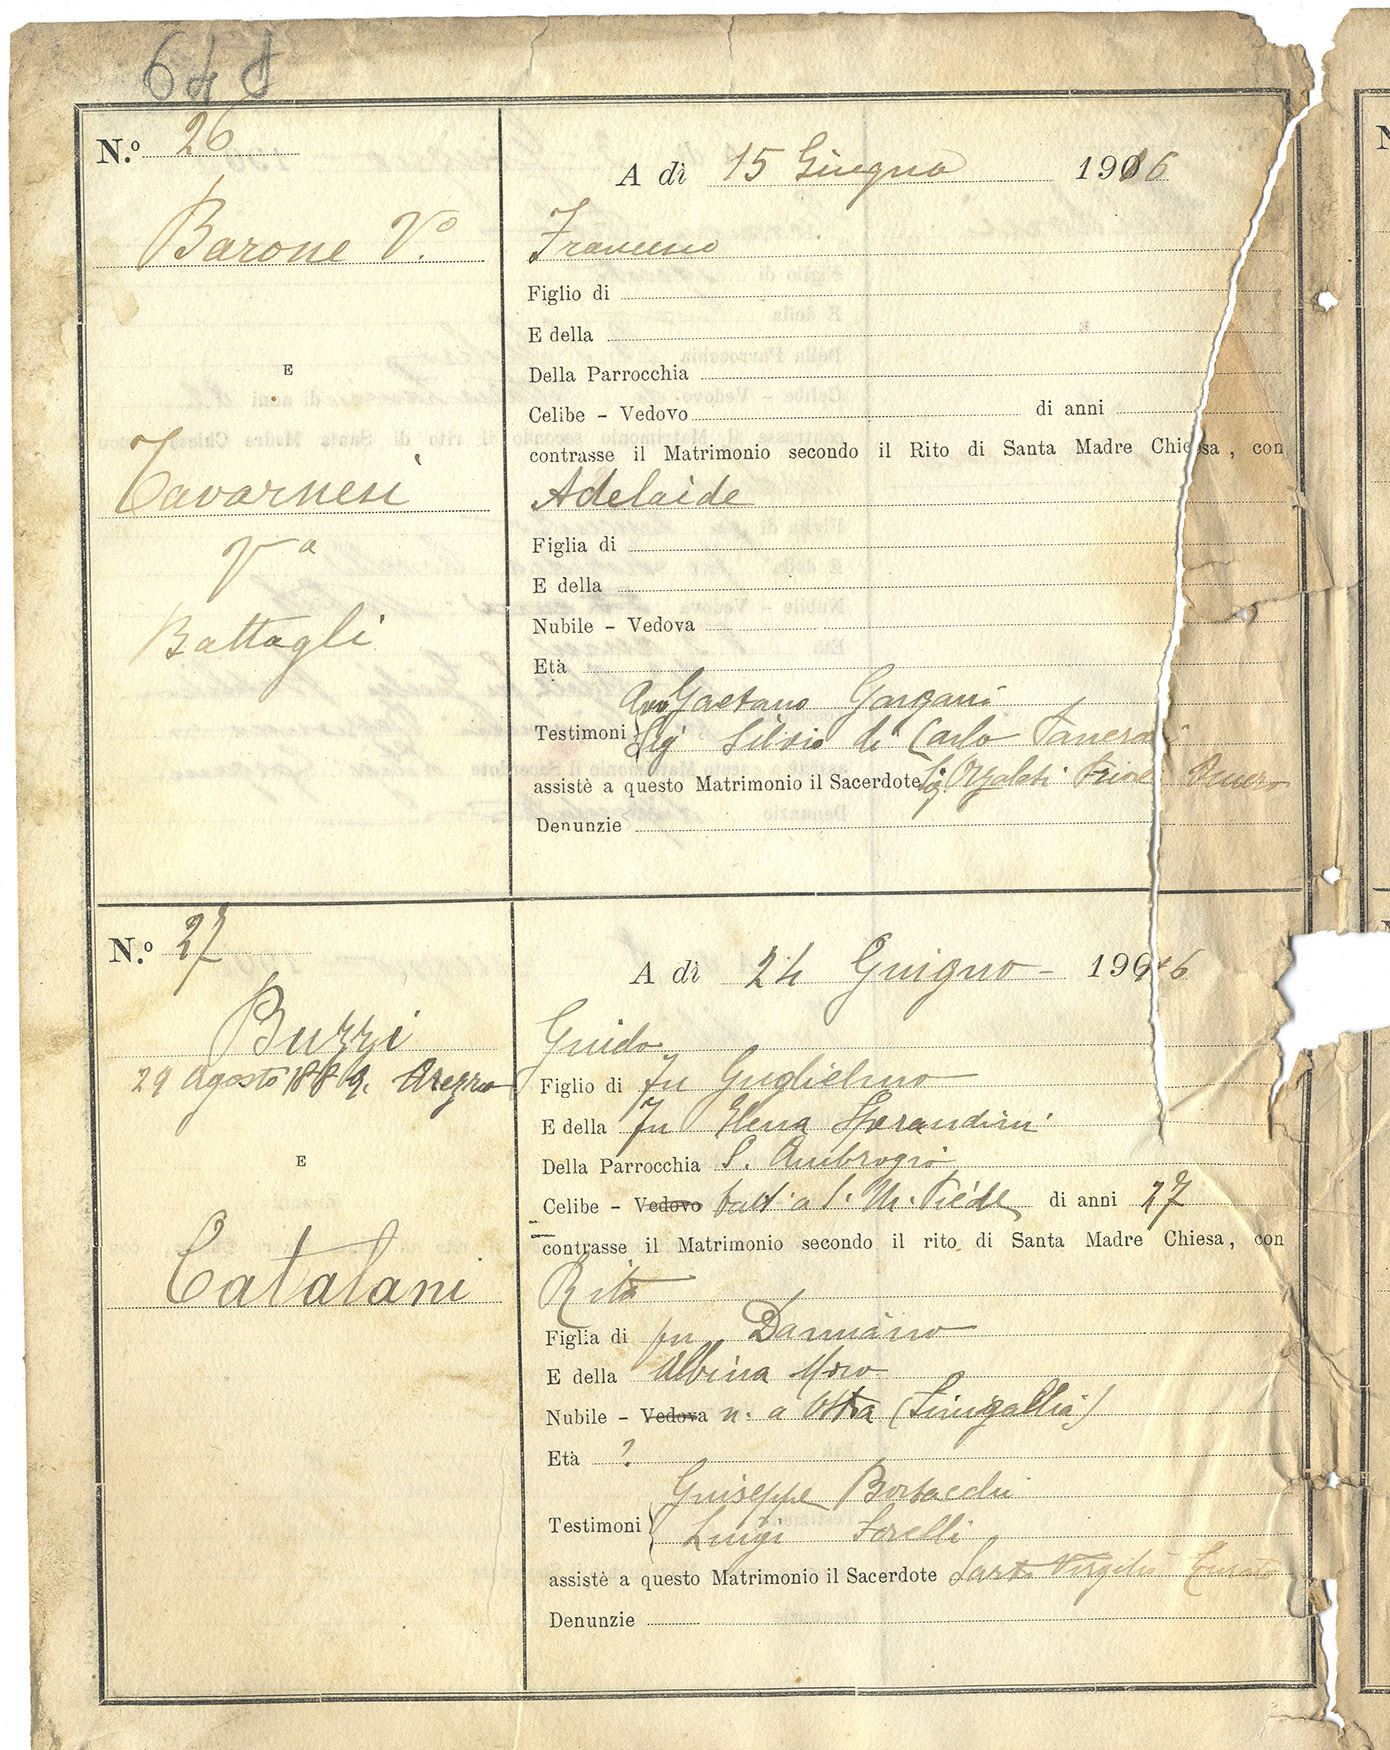 648
N.º 26
A dì 15 Giugno 1916
Barone V.º
Francesco
Figlio di
E della
Della Parrocchia
E
Celibe - Vedovo di anni
contrasse il Matrimonio secondo il Rito di Santa Madre Chiesa, con
Tavarnesi
Adelaide
Vª
Figlia di
E della
Battagli
Nubile - Vedova
Età
Avv Gaetano
Testimoni Sig Silvio di Carlo
assistè a questo Matrimonio il Sacerdote Sig.
Denunzie
N.º 27
A dì 24 Giugno - 1916
Buzzi
Guido
29 Agosto 1889. Arezzo
Figlio di fu Guglielmo
E della fu Elena Sperandini
E
Della Parrocchia S. Ambrogio
Celibe - Vedovo batt. a S. M. Piède di anni 27
contrasse il Matrimonio secondo il rito di Santa Madre Chiesa, con
Catalani
Rita
Figlia di fu Damiano
E della Albina Moro
Nubile - Vedova n. a Ostra (Sinigallia)
Età ?
Giuseppe
Testimoni Luigi Forelli
assistè a questo Matrimonio il Sacerdote Virgilio Curato
Denunzie